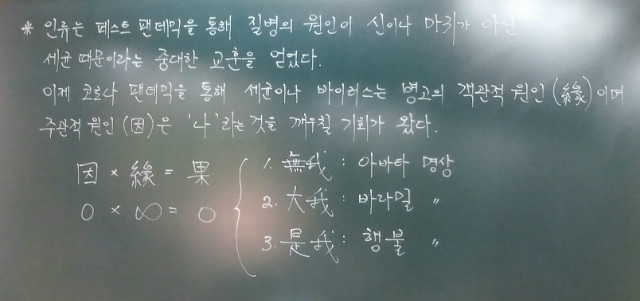 * 인류는 페스트 팬데믹을 통해 질병의 원인이 신이나 마귀가 아닌
세균 때문이라는 중대한 교훈을 얻었다.
이제 코로나 팬데믹을 통해 세균이나 바이러스는 병고의 객관적 원인(緣)이며
주관적 원인(因)은 '나'라는 것을 깨우칠 기회가 왔다.
因 × 緣 = 果
0 × ∞ = 0
1. 無我 : 아바타 명상
2. 大我 : 바라밀 〃
3. 是我 : 행불 〃